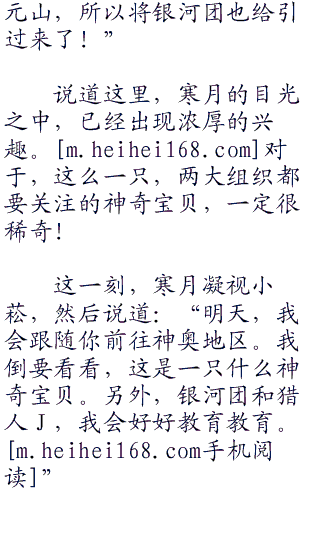 元山，所以将银河团也给引
过来了！”
说道这里，寒月的目光
之中，已经出现浓厚的兴
趣。[m.heihei168.com]对
于，这么一只，两大组织都
要关注的神奇宝贝，一定很
稀奇！
这一刻，寒月凝视小
菘，然后说道：“明天，我
会跟随你前往神奥地区。我
倒要看看，这是一只什么神
奇宝贝。另外，银河团和猎
人J，我会好好教育教育。
[m.heihei168.com手机阅
读]”